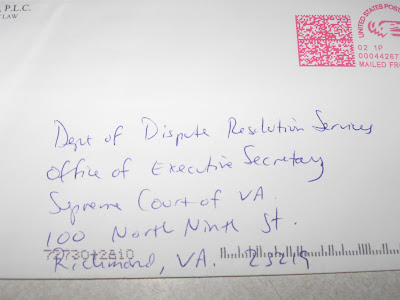 , P.L.C.
LAW
UNITED STATES POST
02 1P
00044267
MAILED FRO
Dept of Dispute Resolution Services
Office of Executive Secretary
Supreme Court of VA.
100 North Ninth St.
7273012810
Richmond, VA. 23219